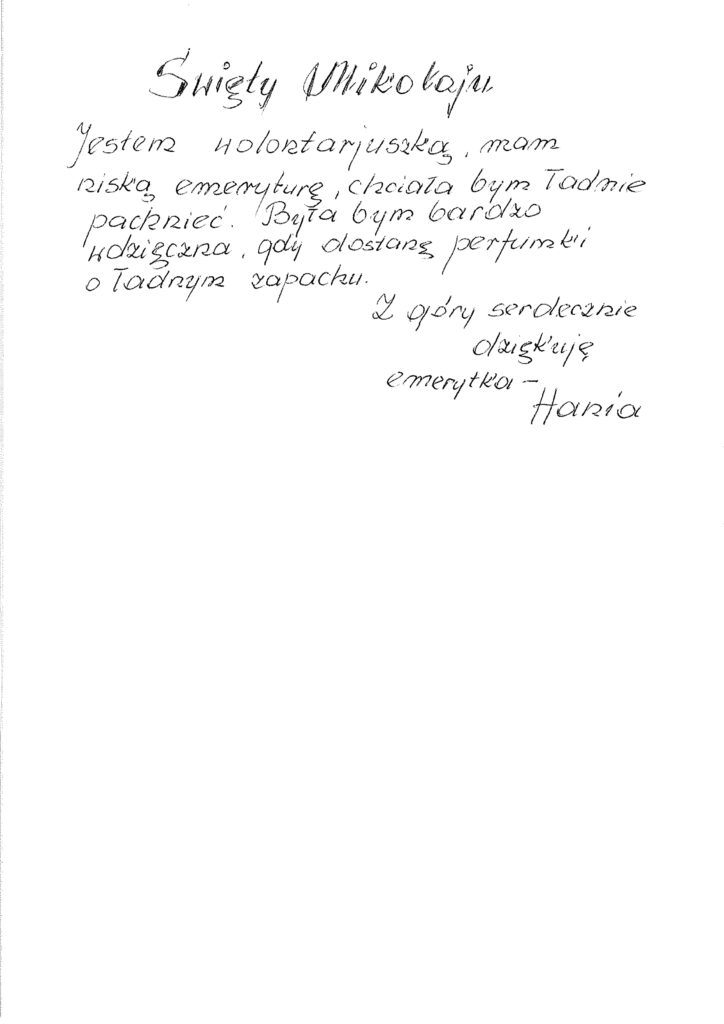 Święty Mikołaju
Jestem wolontarjuszką, mam
niską emeryturę, chciała bym ładnie
pachnieć. Była bym bardzo
wdzięczna, gdy dostanę perfumki
o ładnym zapachu.
Z góry serdecznie
dziękuję
emerytka -
Hania